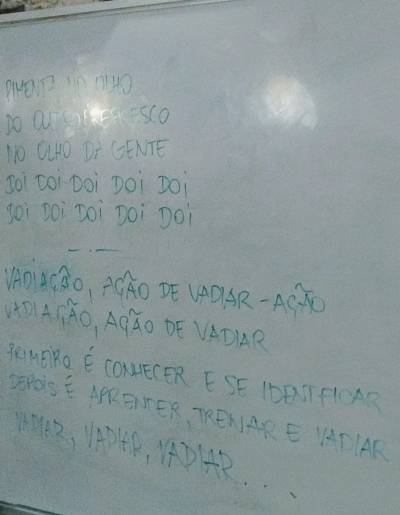 PIMENTA NO OLHO
DO OUTRO É REFRESCO
NO OLHO DA GENTE
DOI DOI DOI DOI DOI
DOI DOI DOI DOI DOI
VADIAÇÃO, AÇÃO DE VADIAR - AÇÃO
VADIAÇÃO, AÇÃO DE VADIAR
PRIMEIRO É CONHECER E SE IDENTIFICAR
DEPOIS É APRENDER, TREINAR E VADIAR
VADIAR, VADIAR, VADIAR...